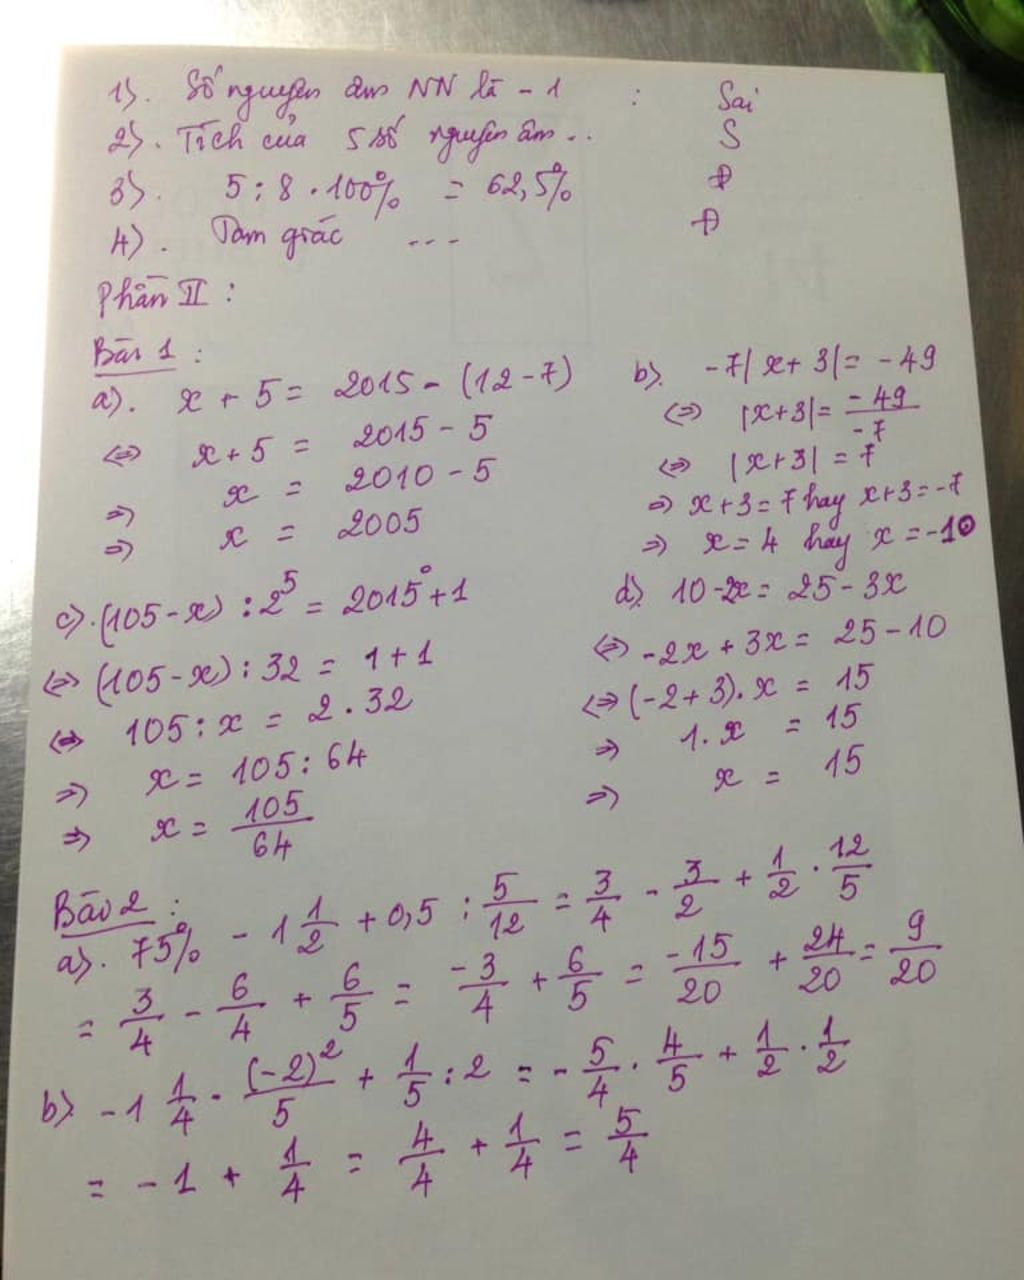 1). Số nguyên âm NN là - 1 : Sai
2). Tích của 5 số nguyên âm .. S
3). 5 : 8 . 100% = 62,5% Đ
4). Tam giác --- Đ
Phần II :
Bài 1 :
a). x + 5 = 2015 - (12 - 7)
<=> x + 5 = 2015 - 5
=> x = 2010 - 5
=> x = 2005
b). -7| x + 3| = - 49
<=> |x+3| = -49/-7
<=> |x+3| = 7
=> x+3 = 7 hay x+3 = -7
=> x = 4 hay x = -10
c). (105 - x) : 2⁵ = 2015⁰ + 1
<=> (105 - x) : 32 = 1 + 1
<=> 105 : x = 2 . 32
=> x = 105 : 64
=> x = 105/64
d). 10 - 2x = 25 - 3x
<=> -2x + 3x = 25 - 10
<=> (-2 + 3). x = 15
=> 1. x = 15
=> x = 15
Bài 2 :
a). 75% - 1 1/2 + 0,5 : 5/12 = 3/4 - 3/2 + 1/2 . 12/5
= 3/4 - 6/4 + 6/5 = -3/4 + 6/5 = -15/20 + 24/20 = 9/20
b) -1 1/4 . (-2)²/5 + 1/5 : 2 = - 5/4 . 4/5 + 1/2 . 1/2
= - 1 + 1/4 = 4/4 + 1/4 = 5/4